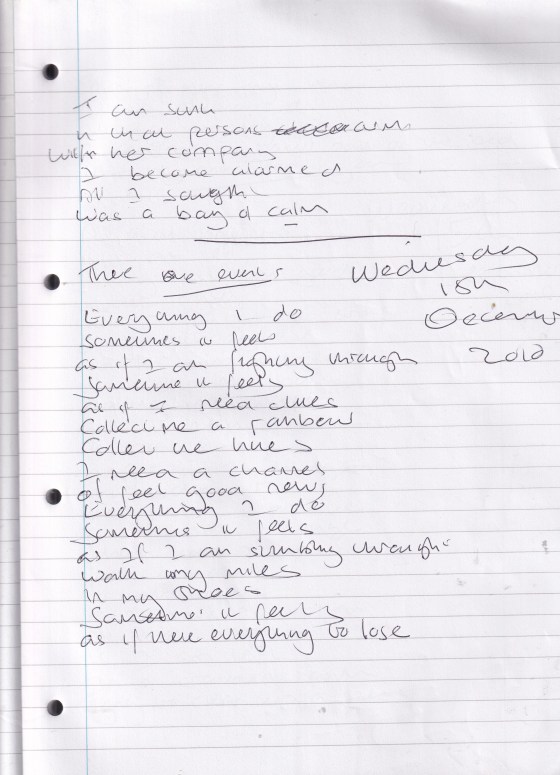 I am sunk
in that persons arms
with her company
I become alarmed
All I sought
was a bay of calm
There are events
Wednesday
15th
December
2010
Everything I do
sometimes it feels
as if I am fighting through
Sometime it feels
as if I need clues
Collect me a rainbow
Collect me hues
I need a channel
of feel good news
Everything I do
Sometimes it feels
as if I am stumbling through
walk my miles
in my shoes
Sometimes it feels
as if there everything to lose